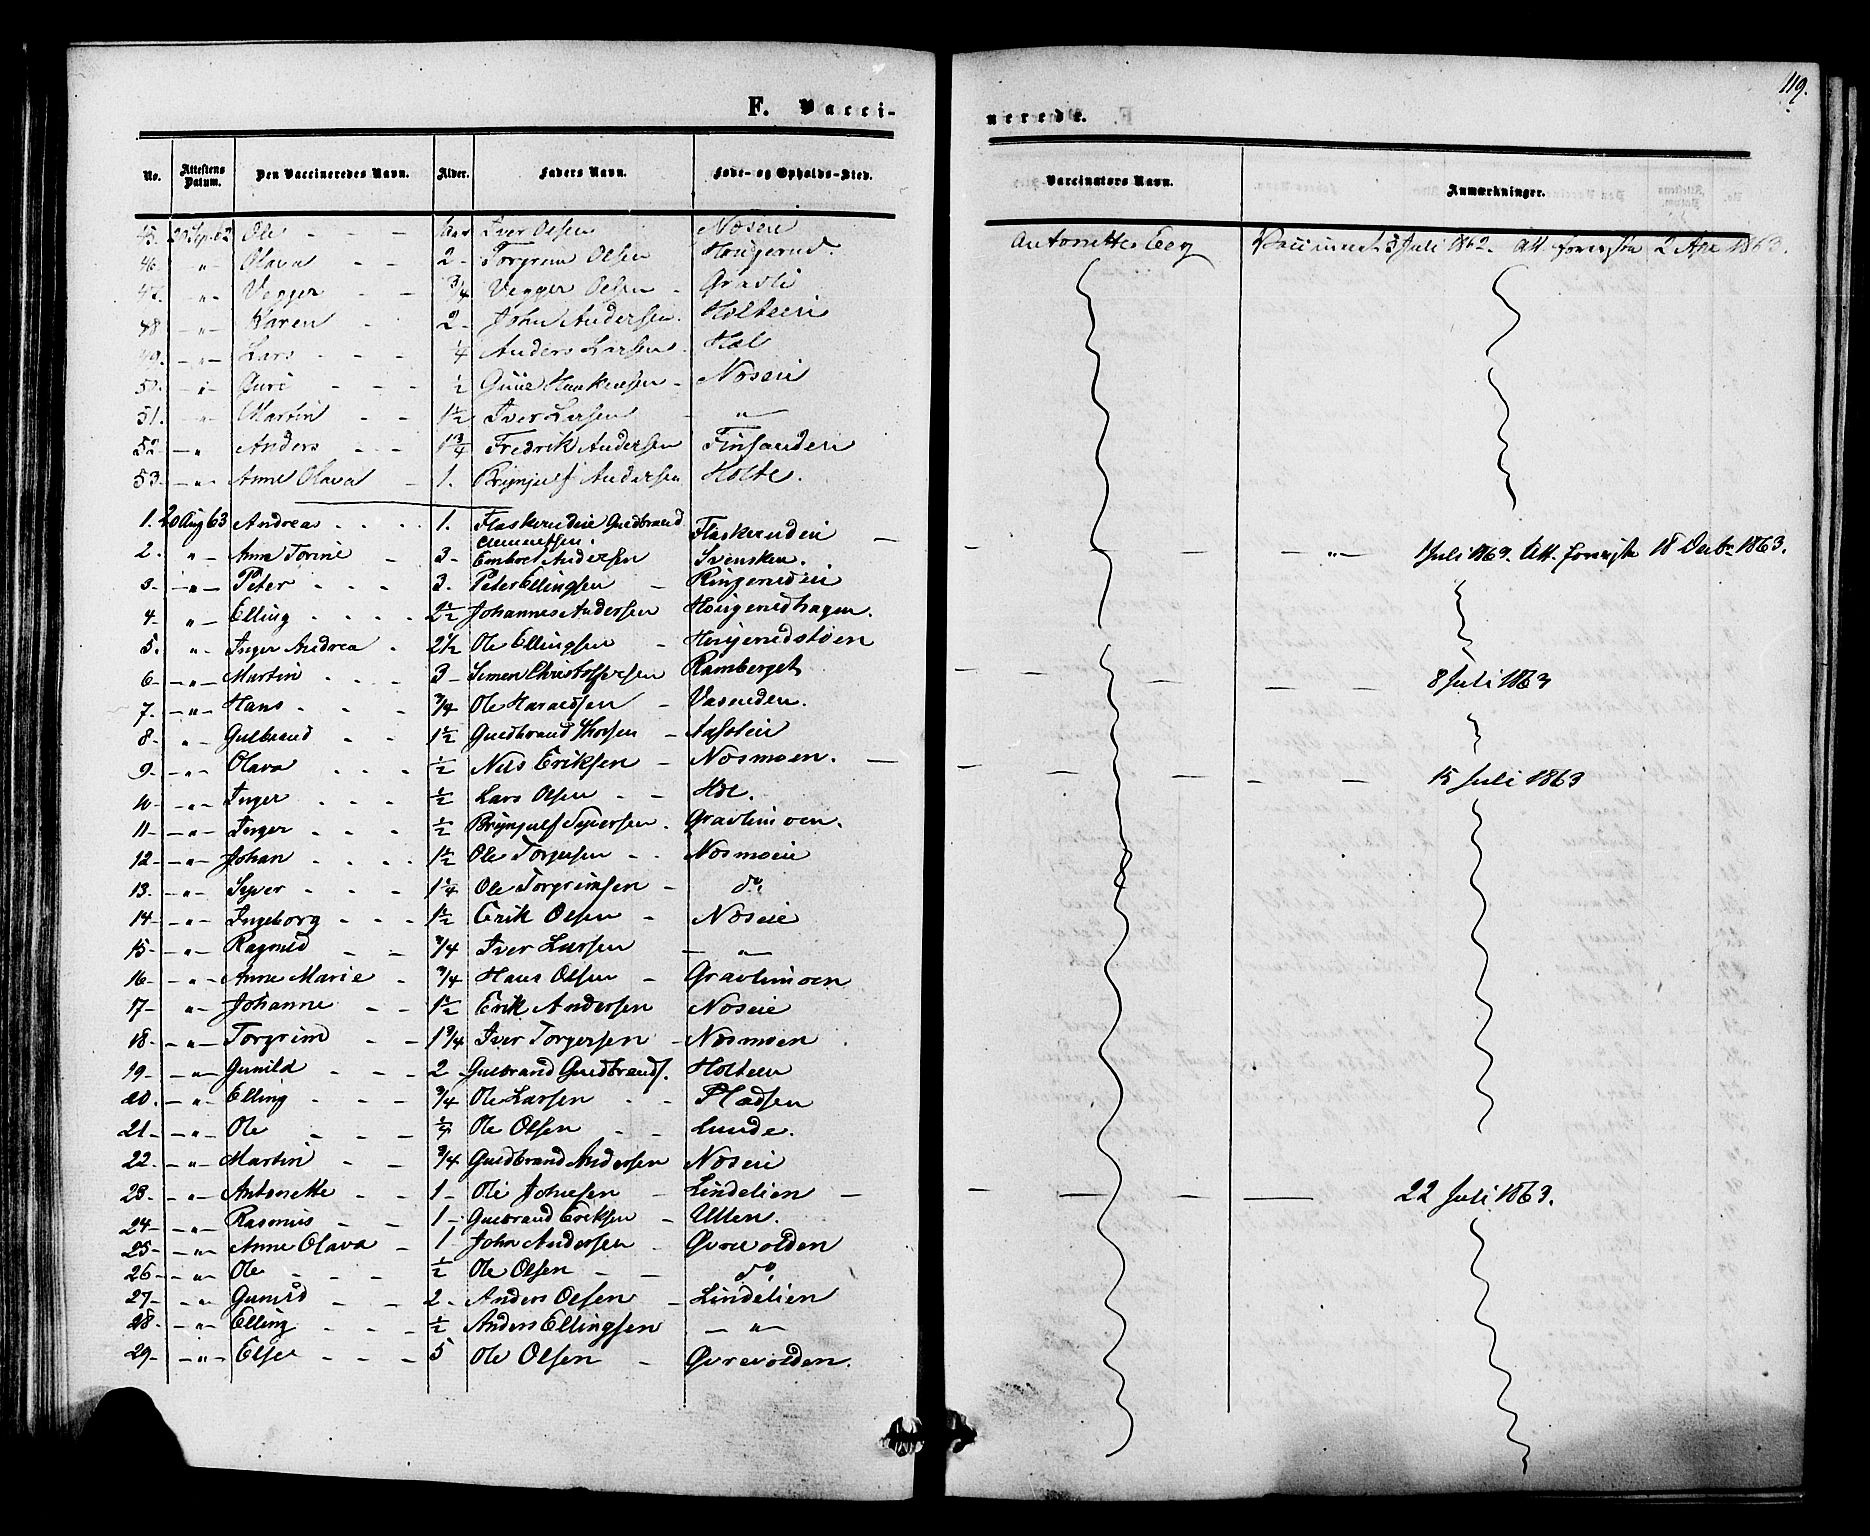 119.
F. Vacci-
nerede.
No. Attestens Datum. Den Vaccineredes Navn. Alder. Faders Navn. Føde- og Opholds-Sted. Vaccinators Navn. Anmærkninger.
45. Ole - - - Iver Olsen Noseie Antonette 3 Juli 1862. Att. 2 Apr 1863.
46 " Olava - - 2 - Torgrim Olsen Hougerud.
47. " Vegger - - 3/4 Vegger Olsen - Gravli
48 - " - Karen - 2 - John Andersen. Holteeie
49. - " - Lars - - - 1/4 Anders Larsen. Hol
50. - " - Guri - - - 1/2 - Noseie
51. " Martin - - 1 1/2 Iver Larsen - "
52 - " Anders - - - 1 3/4 Fredrik Andersen Finsanden
53. - " - Anne Olava - 1. Brynjulf Andersen Holte.
1. 20 Aug 63 Andreas - - - - 1. Flaskerudeie Guldbrand Flaskerudeie
Clemetsen.
2. " - Anne Torine - 3 - Embret Andersen Svensken. - " - 1 Juli 1863. Att. 18 Decbr 1863.
3 - - " - Peter - - - 3. Peter Ellingsen - Ringerudeie
4 - " - Elling - - - - 2 1/2 Johannes Andersen Hougerudhagen.
5. " - Inger Andrea - 2 1/2 Ole Ellingsen - Hougerudstøen
6 - - " - Martin - - - - 3 - Simen Christophersen Ramberget 8 Juli 1863
7. - " - Hans - - - 3/4 Ole Haraldsen - Vasenden.
8 - " - Gulbrand - - 1 1/2 Guldbrand -
9 - - " - Olava - - - 1/2 Nils Eriksen - Nosmoen. 15 Juli 1863
10 - - " - Inger - - - 1/2 Lars Olsen - - Hol.
11 - - " - Inger - - - 1/2 Brynjulf Syversen. Gravlimoen.
12 - - " - Johan - - - - 1 1/2 Ole Torgersen - - Nosmoeie
13. - " - Syver - - - 1 1/4 Ole Torgrimsen - do
14 - - " - Ingeborg - - - 1 1/2 Erik Olsen - Noseie
15 - - " - Ragnild - - 3/4 Iver Larsen - " -
16 - - " - Anne Marie - 3/4 Hans Olsen - Gravlimoen
17 - " - Johanne - - 1 1/2 Erik Andersen Noseie
18 - - " - Torgrim - - 1 3/4 Iver Torgersen - Nosmoen
19 - - " - Gunild - - 2 - Gulbrand Guldbrands. Holteen
20. - " - Elling - - - 3/4 Ole Larsen - - Pladsen
21 - - " - Ole - - - Ole Olsen - - Lunde.
22 - - " - Martin - - 3/4 Guldbrand Andersen Noseie
23 - - " - Antonette - - 1 - Ole Johnsen - Lindelien 22 Juli 1863.
24 - - " - Rasmus - - 1 - Gulbrand Eriksen - Ullen.
25 - - " - Anne Olava - 1 John Andersen - Qvrevolden
26 - - " - Ole - - - 1/2 Ole Olsen - - do
27 - - " - Gunild - - 2 - Anders Olsen - Lindelien
28 - - " - Elling - - - 1/2 Anders Ellingsen - " -
29 - - " - Else - - - 5 Ole Olsen - Qvrevolden.